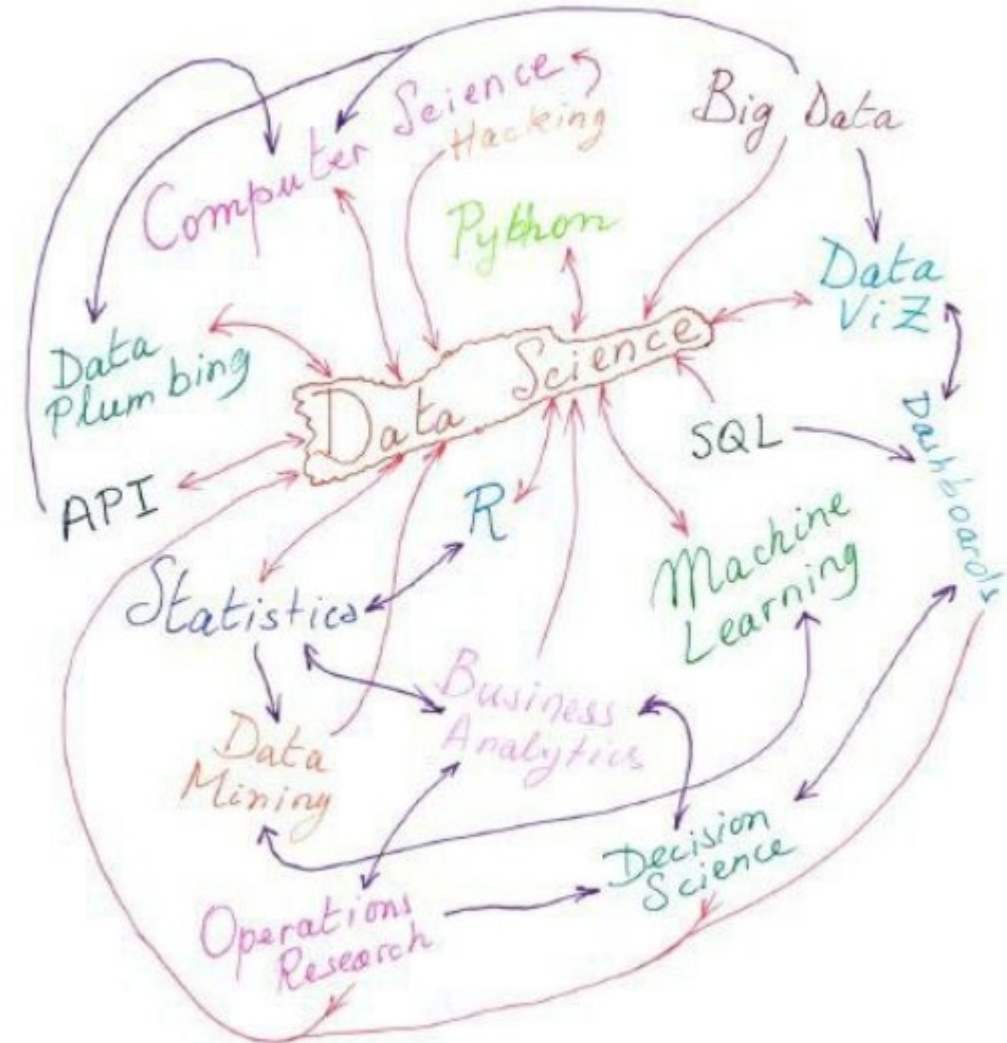 Computer Science
Hacking
Big Data
Python
Data
ViZ
Data
Plumbing
Data Science
SQL
API
R
Dashboards
Machine
Learning
Statistics
Business
Analytics
Data
Mining
Decision
Science
Operations
Research